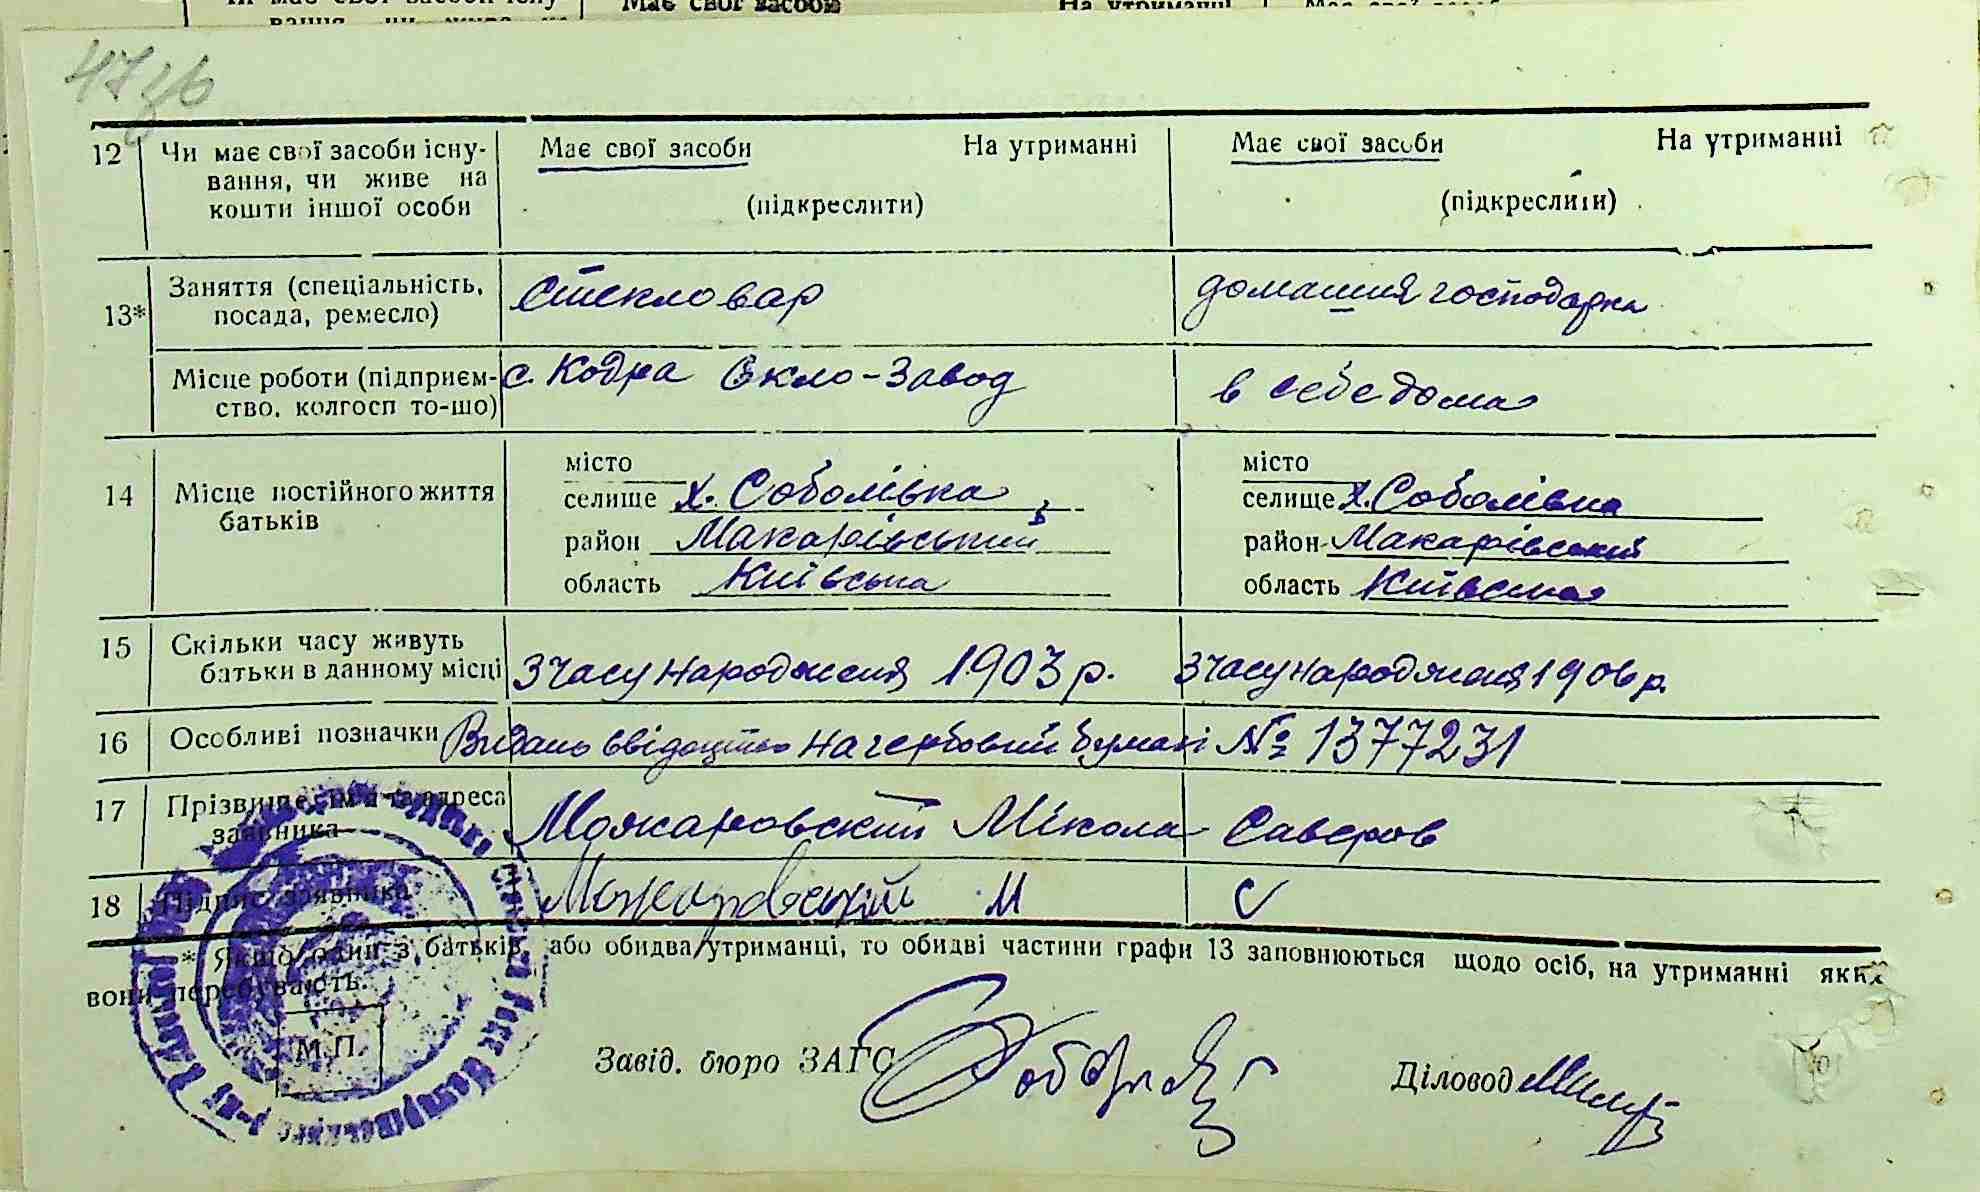 Має свої засобою На утриманні
47зв
12 Чи має свої засоби існу- Має свої засоби На утриманні Має свої засоби На утриманні
вання, чи живе на
кошти іншої особи (підкреслити) (підкреслити)
13* Заняття (спеціальність, Стекловар домашня господарка
посада, ремесло)
Місце роботи (підприєм- с. Кодра Скло-Завод в себе дома
ство, колгосп то-що)
14 Місце постійного життя
батьків
місто місто
селище х. Соболівка селище х. Соболівка
район Макарівський район Макарівський
область Київська область Київська
15 Скільки часу живуть
батьки в данному місці з часу народження 1903 р. з часу народження 1906 р.
16 Особливі позначки Видано свідоцтво на гербовий бумазі № 1377231
17 Прізвище, ім'я та адреса
заявника Можаровский Мікола Саверов
18 Підпис заявника Можаровський М С
* Якщо один з батьків, або обидва утриманці, то обидві частини графи 13 заповнюються щодо осіб, на утриманні яких
вони перебувають.
М.П. Завід. бюро ЗАГС Діловод